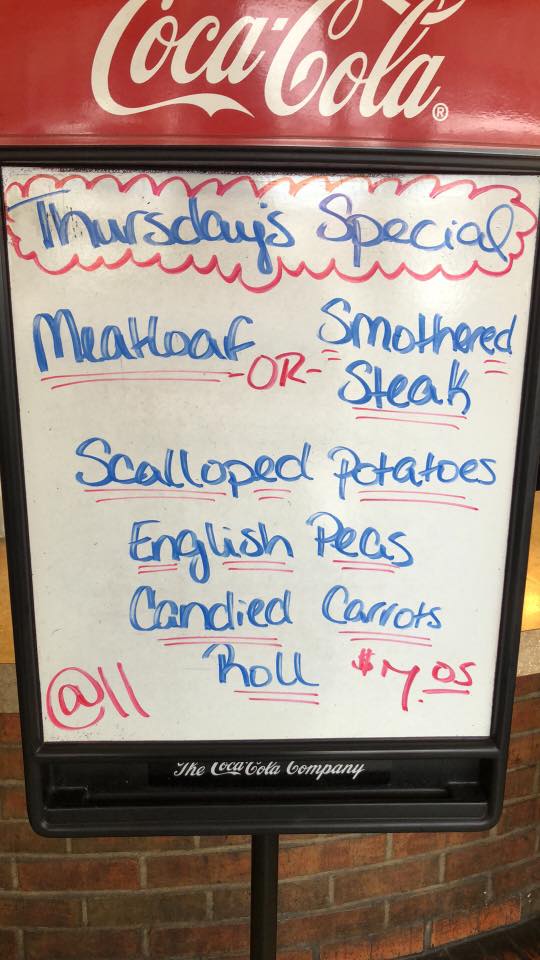 Coca-Cola®
Thursday's Special
Meatloaf -OR- Smothered Steak
Scalloped Potatoes
English Peas
Candied Carrots
Roll
@11 $7.05
The Coca-Cola Company